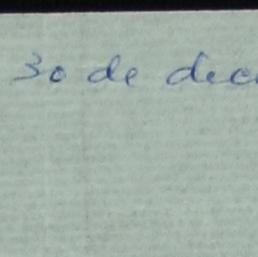 30 de dec